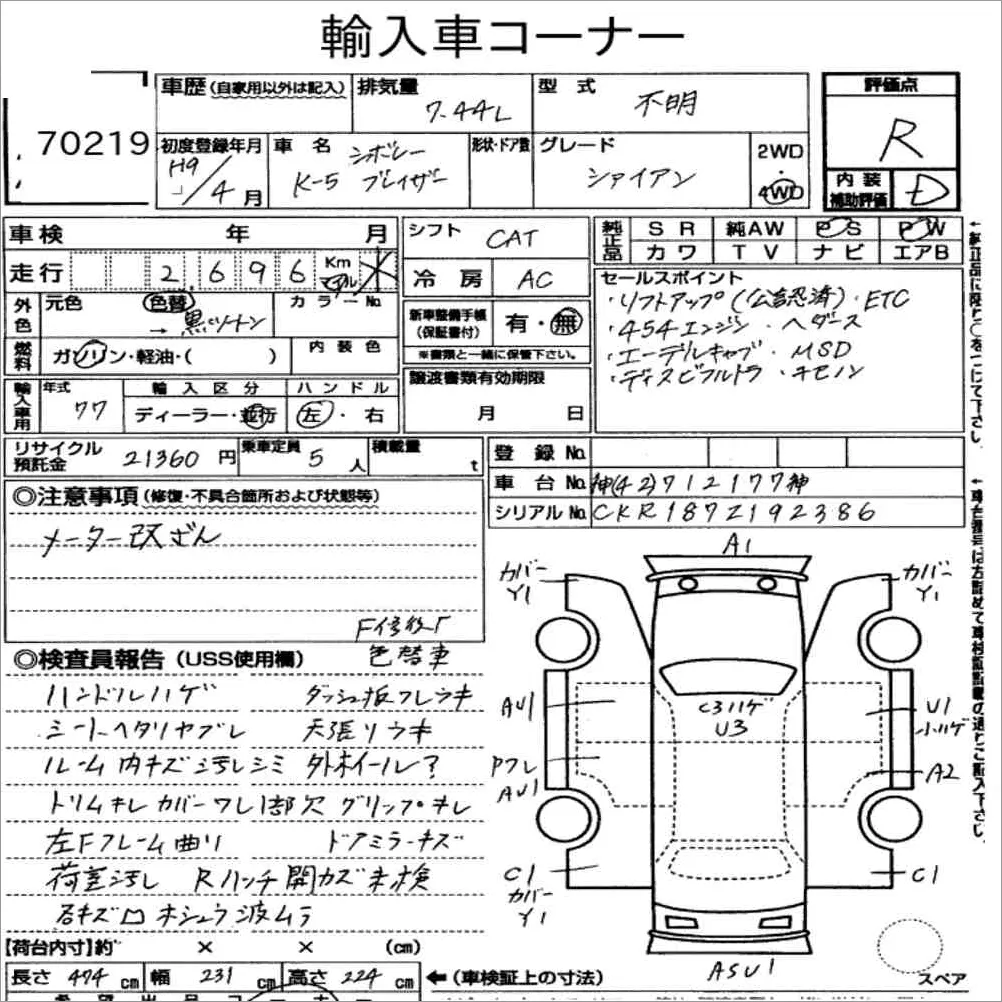 輸入車コーナー
70219
車歴(自家用以外は記入)
排気量 7.44L
型式 不明
評価点 R
内装補助評価 D
初度登録年月 H9/4月
車名 シボレー K-5 ブレイザー
形状・ドア数
グレード シャイアン
2WD・4WD
車検 年 月
走行 2,696 Km マイル
シフト CAT
冷房 AC
純正品 SR 純AW PS PW
カワ TV ナビ エアB
外色 元色 色替 → 黒パソートン カラーNo
燃料 ガソリン・軽油・( )
内装色
新車整備手帳(保証書付) 有・無
※書類と一緒に保管下さい。
セールスポイント
・リフトアップ(公認忍済)・ETC
・454エンジン・ヘダース
・エーデルキャブ・MSD
・ディスビウルトラ・キセノン
輸入車用 年式 77
輸入区分 ディーラー・並行
ハンドル 左・右
譲渡書類有効期限 月 日
リサイクル預託金 21360円
乗車定員 5人
積載量 t
登録No.
車台No. 神(42)712177神
シリアルNo. CKR1872192386
◎注意事項(修復・不具合箇所および状態等)
メーター改ざん
F修復歴
色替車
◎検査員報告(USS使用欄)
ハンドルハゲ ダッシュ板フレウキ
シートヘタリヤブレ 天張リウキ
ルーム内キズ汚レシミ 外ホイール?
トリムキレ カバーワレ1部欠 グリップキレ
左Fフレーム曲リ ドアミラーキズ
荷室汚レ Rハッチ開カズ未検
A1
カバー Y1
カバー Y1
AU1
C3ハゲ
U3
U1
小ハゲ
Pフレ
AU1
A2
C1
カバー
Y1
C1
ASU1
スペア
【荷台内寸】約 × × (cm)
長さ 474cm 幅 231cm 高さ 224cm
←(車検証上の寸法)